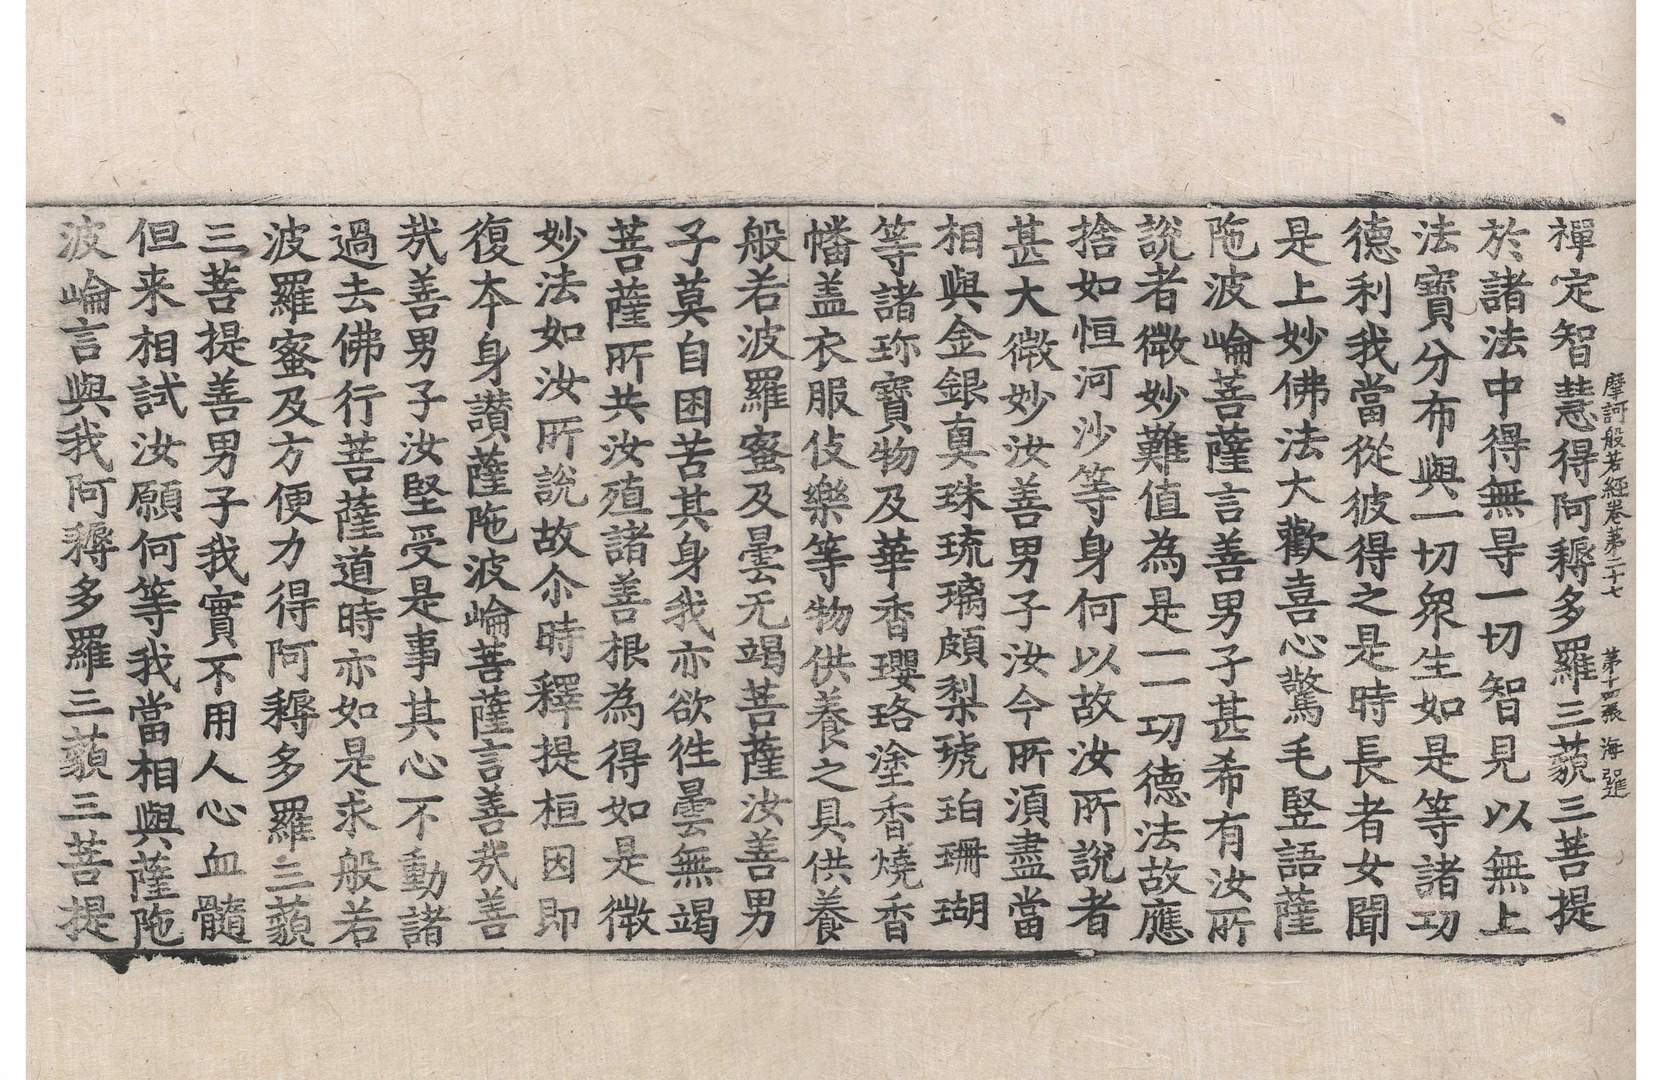 摩訶般若經卷第二十七 第十四張 海
禪定智慧得阿耨多羅三藐三菩提
於諸法中得無㝵一切智見以無上
法寶分布與一切衆生如是等諸功
德利我當從彼得之是時長者女聞
是上妙佛法大歡喜心驚毛竪語薩
陁波崘菩薩言善男子甚希有汝所
說者微妙難值為是一一功德法故應
捨如恒河沙等身何以故汝所說者
甚大微妙汝善男子汝今所須盡當
相與金銀真珠琉璃頗梨琥珀珊瑚
等諸珎寶物及華香瓔珞塗香燒香
幡盖衣服伎樂等物供養之具供養
般若波羅蜜及曇无竭菩薩汝善男
子莫自困苦其身我亦欲往曇無竭
菩薩所共汝殖諸善根為得如是微
妙法如汝所說故尒時釋提桓因即
復夲身讃薩陁波崘菩薩言善㢤善
㢤善男子汝堅受是事其心不動諸
過去佛行菩薩道時亦如是求般若
波羅蜜及方便力得阿耨多羅三藐
三菩提善男子我實不用人心血髓
但来相試汝願何等我當相與薩陁
波崘言與我阿耨多羅三藐三菩提